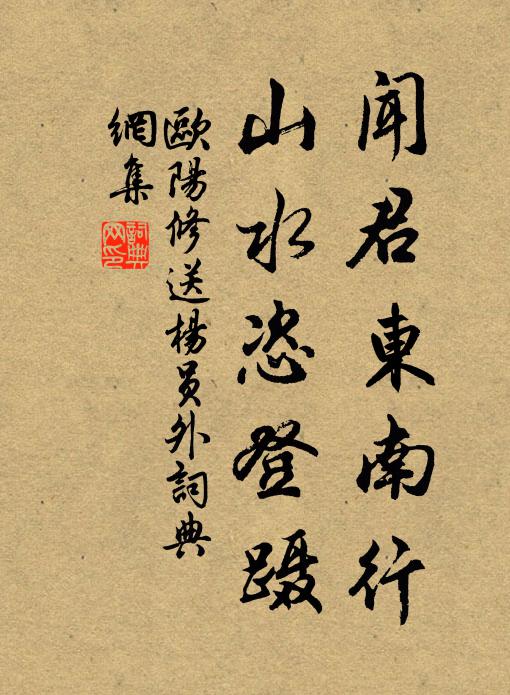 闻君東南行
山水恣登蹑
歐陽修送楊员外詞典
網集
詞典
网印